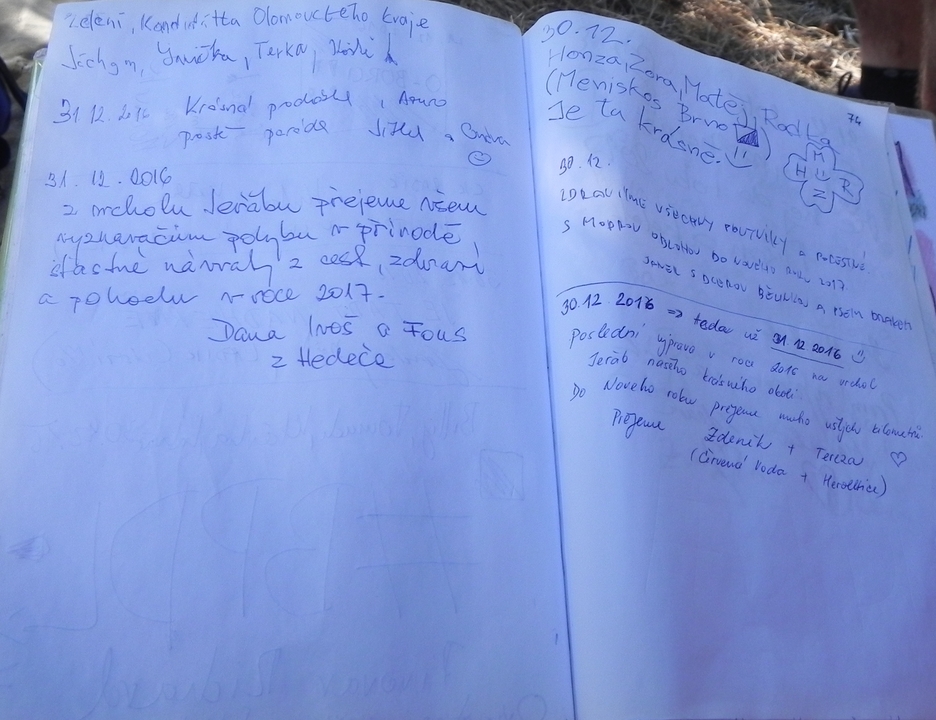 Zelení, Kandidátka Olomouckého kraje
Jáchym, Terka,
31.12.2016 Krásná procházka, Azuro
prostě paráda Jitka a
31.12.2016
z vrcholu Jeřábu přejeme všem
vyznavačům pohybu v přírodě,
šťastné návraty z cest, zdraví
a pohodu v roce 2017.
Dana Ivoš a Fous
z Hedeče
74
30.12.
Honza, Zora, Matěj, Radka
(Meniskos Brno)
Je tu krásně.
M
H R
Z
30.12.
ZDRAVÍME VŠECHNY POUTNÍKY A POCESTNÉ
S MODROU OBLOHOU DO NOVÉHO ROKU 2017.
S DCEROU A PSEM
30.12 2016 => teda už 31.12 2016
Poslední výprava v roce 2016 na vrchol
Jeřáb našeho krásného okolí.
Do Nového roku přejeme mnoho ušlých kilometrů.
Přejeme Zdeněk + Tereza
(Červená Voda + Heroltice)